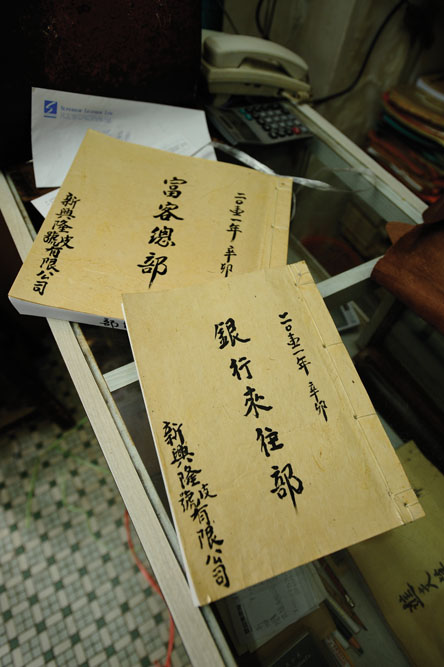 二〇一一年 辛卯
富客總部
新興隆皮號有限公司
二〇一一年 辛卯
銀行來往部
新興隆皮號有限公司